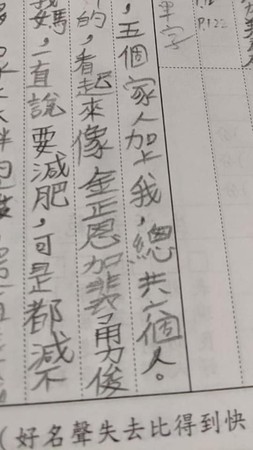 單字
P.122
，五個家人加上我，總共六個人。
的，看起來像金正恩加裴勇俊
我媽，一直說要減肥，可是都減不
（好名聲失去比得到快